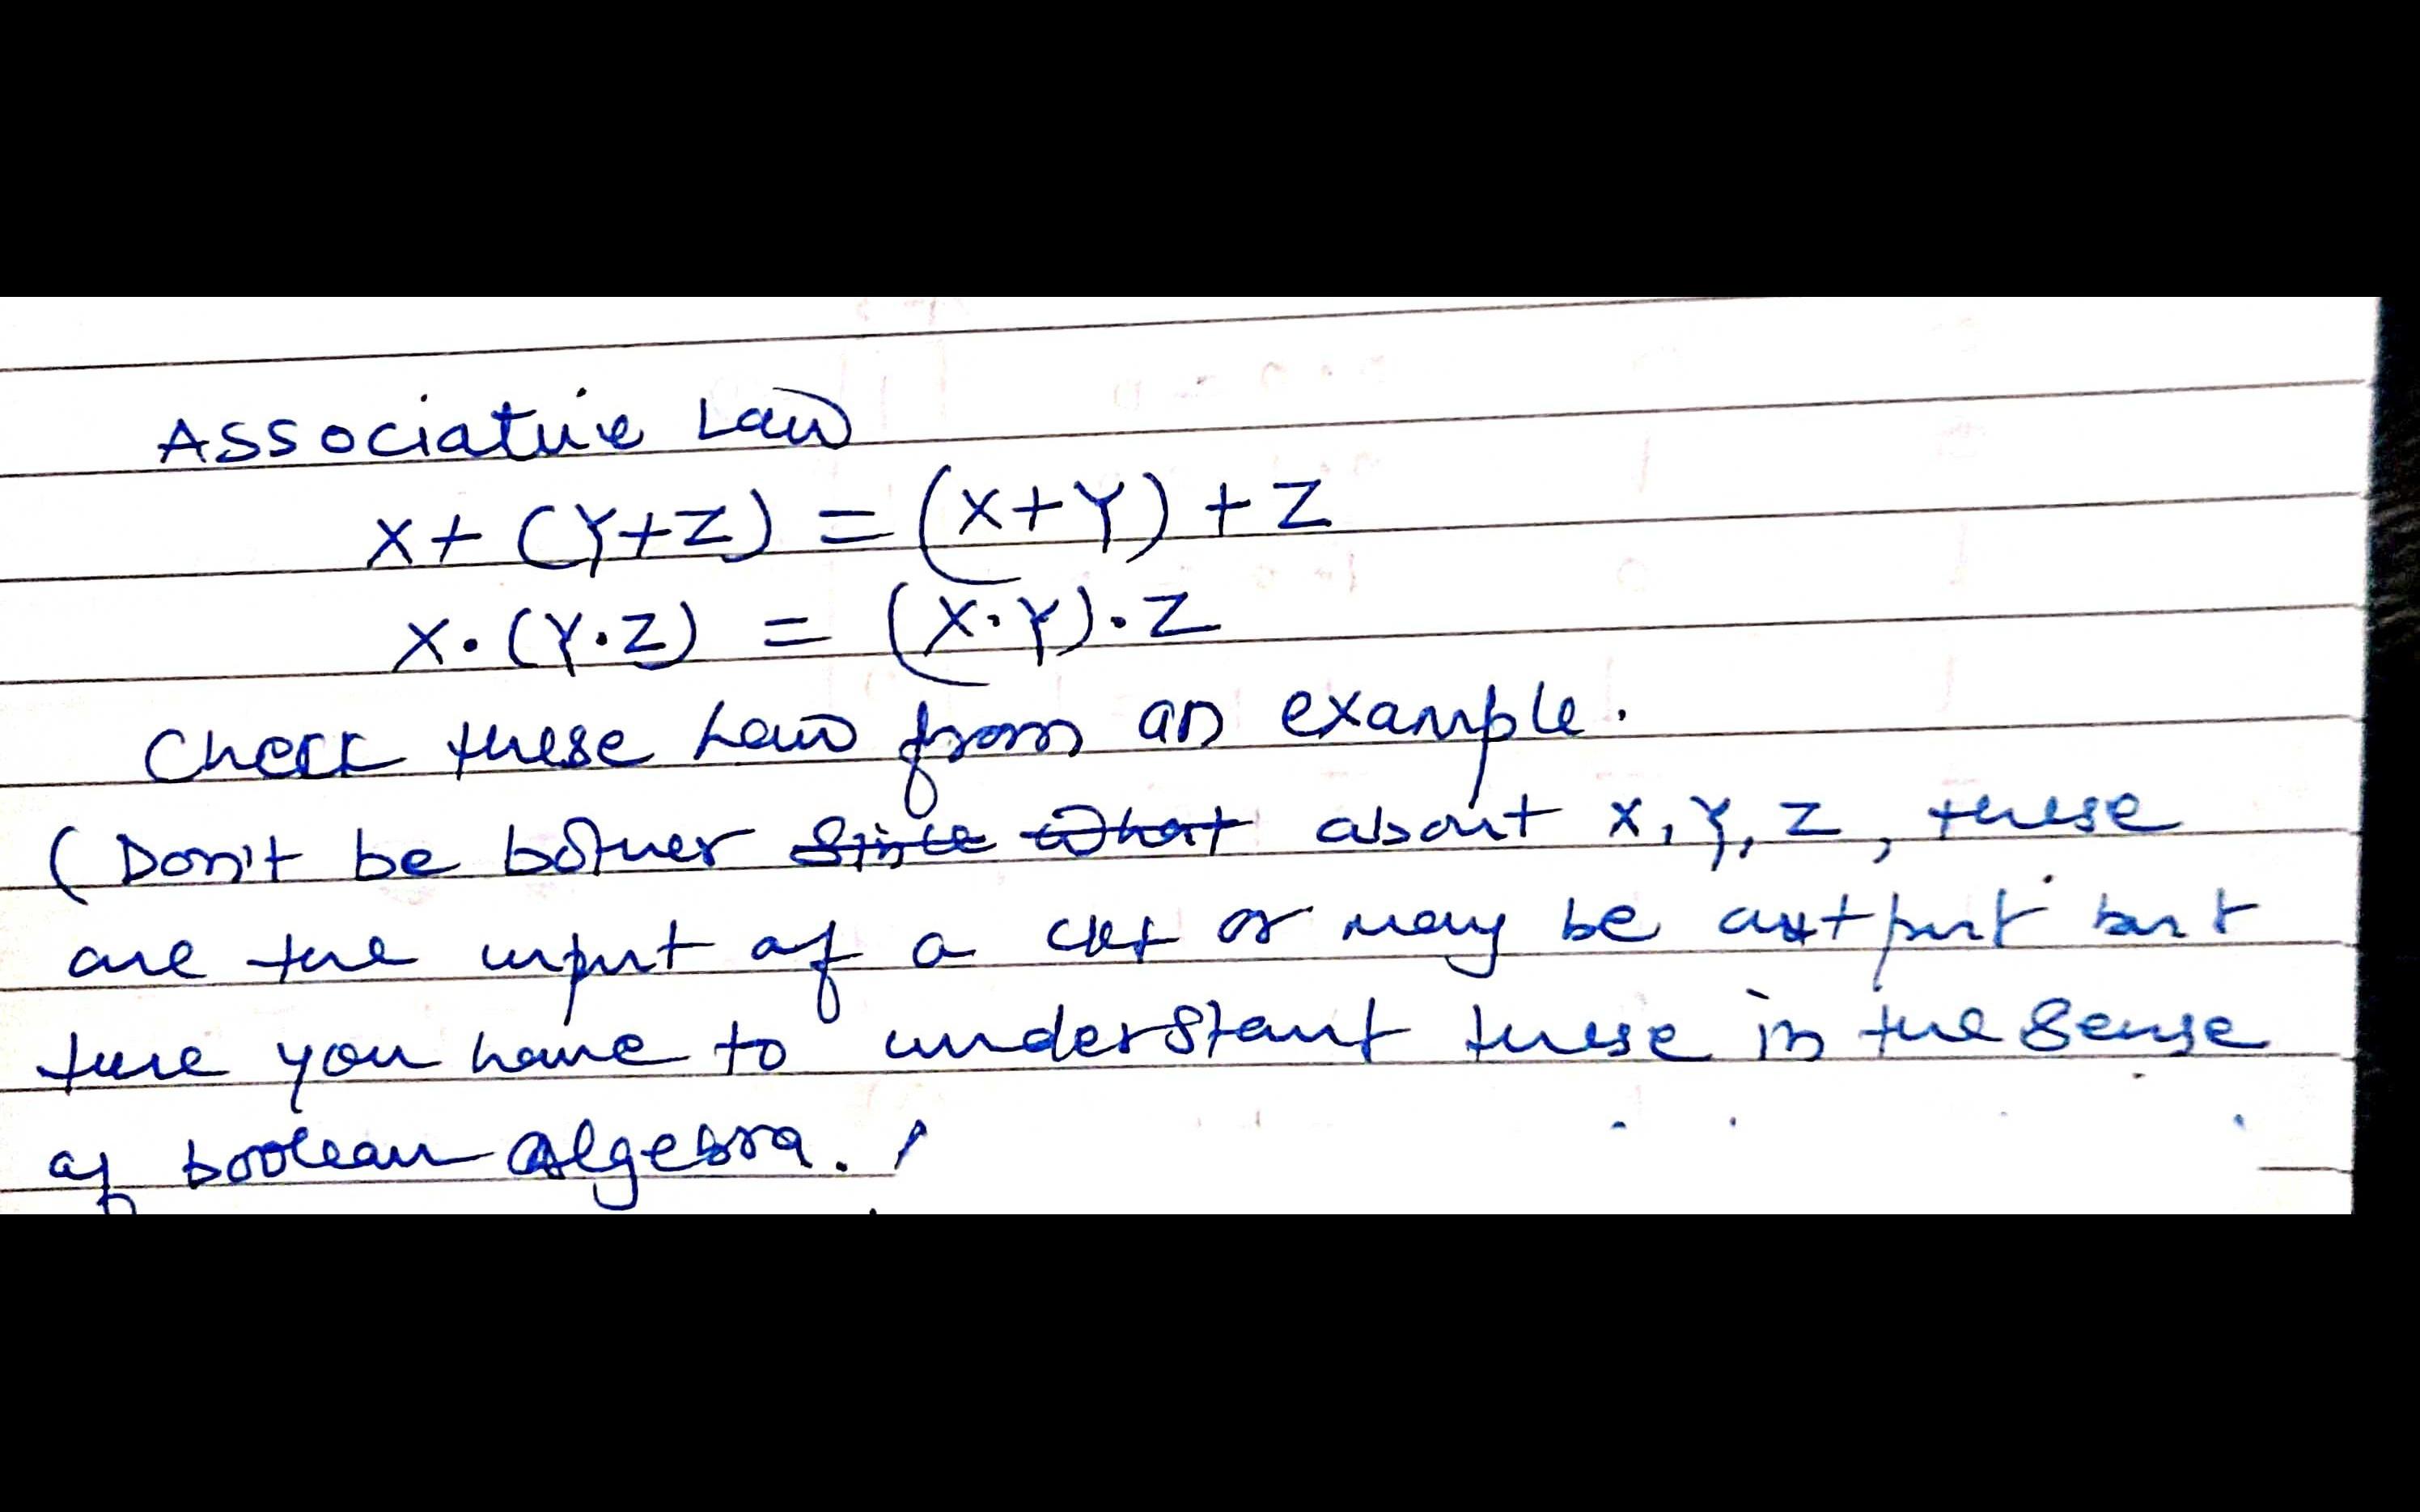 Associative Law
X + (Y+Z) = (X+Y) + Z
X.(Y.Z) = (X.Y).Z
Check these Law from an example.
(Don't be bother since what about X, Y, Z, these
are the input of a ckt or may be output but
here you have to understant these in the sense
of boolean algebra.)